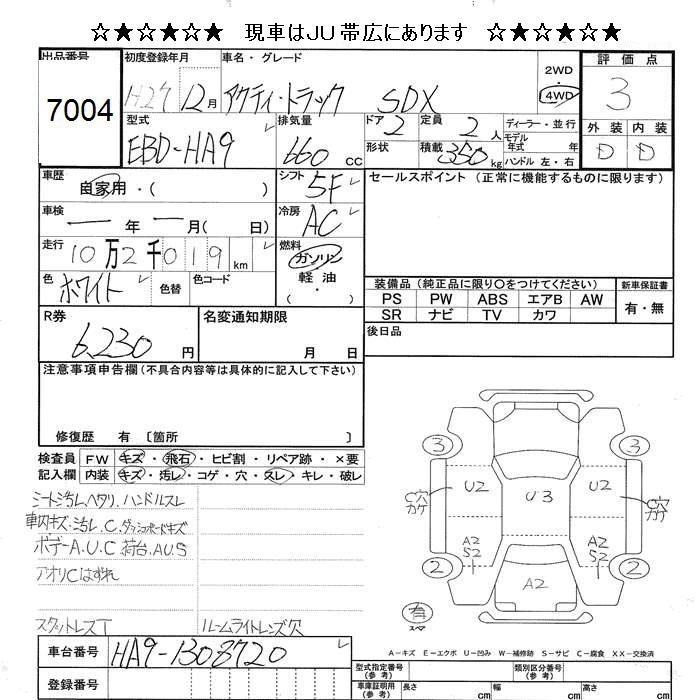 ☆★☆★☆★ 現車はJU帯広にあります ☆★☆★☆★
出品番号 初度登録年月 車名・グレード 2WD 評価点
7004 H27 12月 アクティ・トラック SDX 4WD 3
型式 排気量 ドア 2 定員 2人 ディーラー・並行 外装 内装
EBD-HA9 660 CC 形状 積載 350 kg モデル年式 年 D D
ハンドル 左・右
車歴 自家用・( ) シフト 5F セールスポイント(正常に機能するものに限ります)
車検 ー年ー月( 日) 冷房 AC
走行 10万2千019km 燃料 ガソリン
色 ホワイト 色替 色コード 軽油 ・( )
装備品(純正品に限り○をつけてください) 新車保証書
PS PW ABS エアB AW 有・無
SR ナビ TV カワ
R券 6,230円 名変通知期限 月 日 後日品
注意事項申告欄(不具合内容等は具体的に記入して下さい)
修復歴 有 〔箇所 〕
検査員 FW キズ・飛石・ヒビ割・リペア跡・×要
記入欄 内装 キズ・汚レ・コゲ・穴・スレ・キレ・破レ
シート汚レ、ヘタリ、ハンドルスレ
車内キズ・汚レ、C、ダッシュボードキズ
ボデーA、U、C 荷台、A、U、S
アオリCはずれ
スタットレスT ルームライトレンズ欠
3 3
C穴カケ U2 U3 U2 C穴カケ
A2 S2 A2 S2
2 A2 2
有 スペア
A-キズ E-エクボ U-凹み W-補修跡 S-サビ C-腐食 XX-交換済
車台番号 HA9-1308720
登録番号
型式指定番号(参考) 類別区分番号(参考)
車庫証明用(参考) 長さ cm 幅 cm 高さ cm